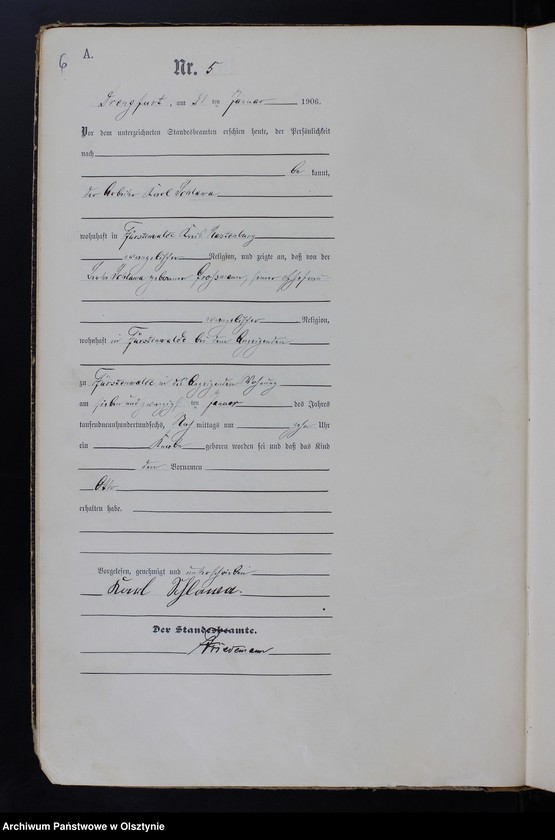 6
A.
Nr. 5
Drengfurt, am ten Januar 1906.
Vor dem unterzeichneten Standesbeamten erschien heute, der Persönlichkeit
nach
be kannt,
der Arbeiter Karl Schlawa
wohnhaft in Fürstenwalde Kreis Rastenburg
evangelischer Religion, und zeigte an, daß von der
Schlawa geborenen Großmann, seiner Ehefrau
evangelischer Religion,
wohnhaft in Fürstenwalde bei dem Anzeigenden
zu Fürstenwalde in des Anzeigenden Wohnung
am sieben und zwanzig ten Januar des Jahres
tausendneunhundertundsechs, Nach mittags um zehn Uhr
ein Knabe geboren worden sei und daß das Kind
den Vornamen
Otto
erhalten habe.
Vorgelesen, genehmigt und unterschrieben
Karl Schlawa.
Der Standesbeamte.
Friedemann
Archiwum Państwowe w Olsztynie